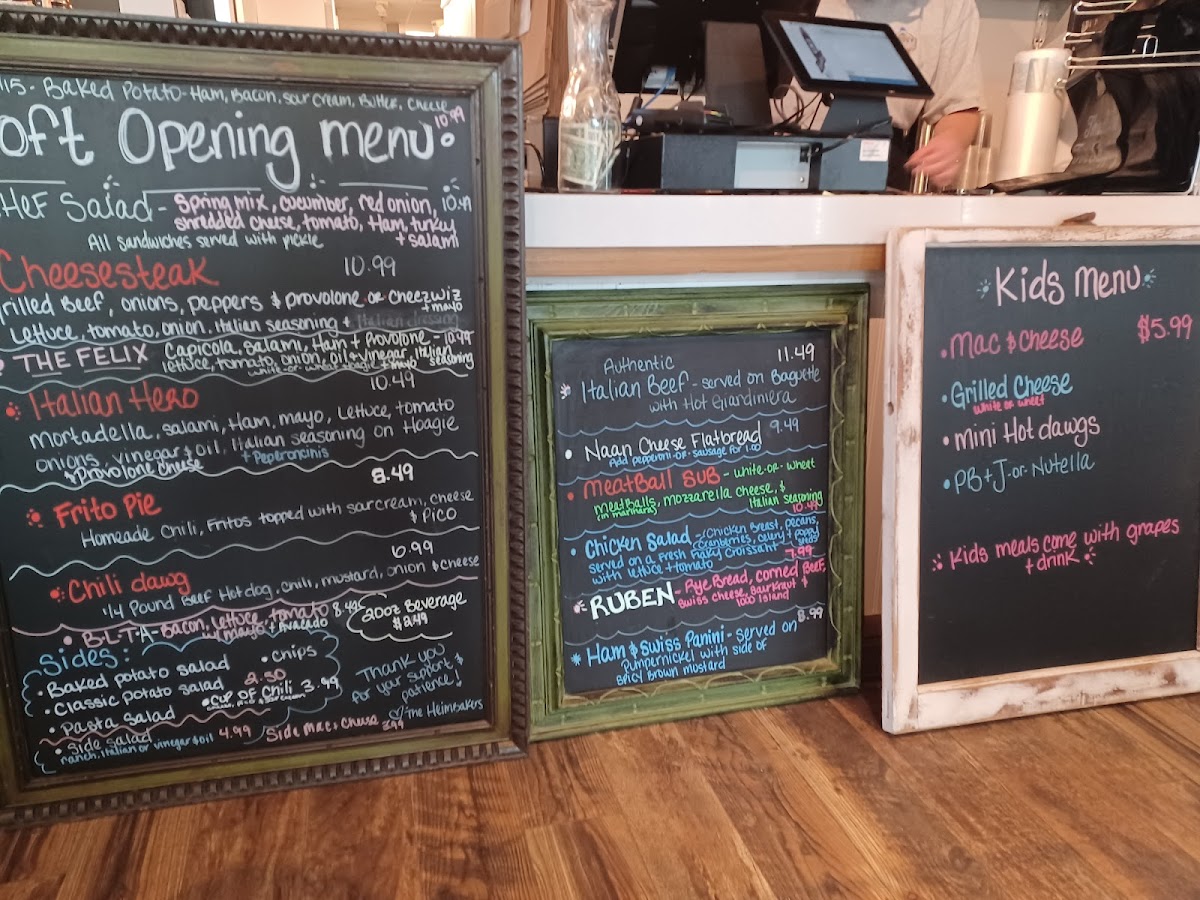 115- Baked Potato-Ham, Bacon, sour cream, Butter, Cheese
10.99
oft Opening menu
Hef Salad - Spring mix, cucumber, red onion, 10.49
shredded cheese, tomato, Ham, turkey
+ salami
All sandwiches served with pickle
Cheesesteak 10.99
rilled Beef, onions, peppers & provolone or cheezwiz
+ mayo
Lettuce, tomato, onion, italian seasoning + Italian dressing
THE FELIX Capicola, salami, Ham + Provolone - 10.99
lettuce, tomato, onion, oil + vinegar, Italian seasoning
white or wheat Hoagie + mayo
Italian Hero 10.49
mortadella, salami, Ham, mayo, Lettuce, tomato
onions, vinegar & oil, Italian seasoning on Hoagie
& provolone cheese + Peperoncinis
8.49
Frito Pie
Homeade Chili, Fritos topped with sarcream, cheese
& Pico
6.99
Chili dawg
1/4 Pound Beef Hotdog, chili, mustard, onion & cheese
B-L-T-A- Bacon, Lettuce, tomato 8.49
w/ mayo + Avacado
20oz Beverage
$2.49
Sides:
• Baked potato salad • Chips
• Classic potato salad 2.50
• Pasta Salad • Cup of Chili 3.99
• Side salad
ranch, italian or vinegar & oil 4.99 Side Mac & Cheese 3.99
Thank you
for your support &
patience!
The Heimbakers
Authentic 11.49
Italian Beef - served on Baguette
with Hot Giardiniera
• Naan Cheese Flatbread 9.49
Add pepperoni or sausage for 1.00
• MeatBall SUB - white or wheat
meatballs, mozzarella cheese, &
(in marinara) Italian seasoning
10.49
• Chicken Salad - Chicken Breast, pecans,
cranberries, celery & poppy seeds
served on a Fresh Flaky Croissant
with lettuce + tomato 7.99
RUBEN - Rye Bread, corned Beef,
Swiss cheese, Saurkraut &
1000 Island
8.99
Ham & Swiss Panini - served on
Pumpernickel with side of
spicy Brown mustard
Kids Menu
• Mac & Cheese $5.99
• Grilled Cheese
white or wheat
• mini Hot dawgs
• PB + J - or Nutella
Kids meals come with grapes
+ drink